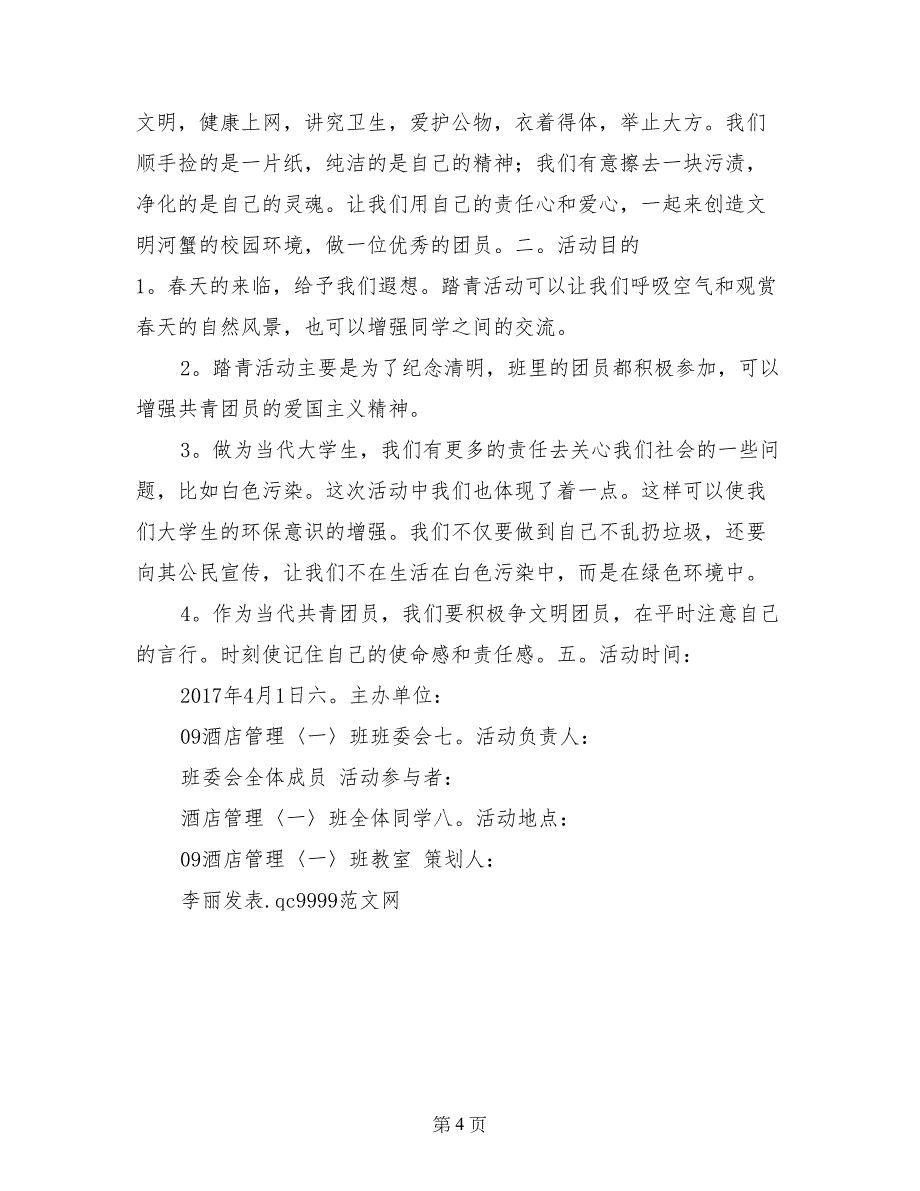 文明，健康上网，讲究卫生，爱护公物，衣着得体，举止大方。我们
顺手捡的是一片纸，纯洁的是自己的精神；我们有意擦去一块污渍，
净化的是自己的灵魂。让我们用自己的责任心和爱心，一起来创造文
明河蟹的校园环境，做一位优秀的团员。二。活动目的
1。春天的来临，给予我们遐想。踏青活动可以让我们呼吸空气和观赏
春天的自然风景，也可以增强同学之间的交流。
2。踏青活动主要是为了纪念清明，班里的团员都积极参加，可以
增强共青团员的爱国主义精神。
3。做为当代大学生，我们有更多的责任去关心我们社会的一些问
题，比如白色污染。这次活动中我们也体现了着一点。这样可以使我
们大学生的环保意识的增强。我们不仅要做到自己不乱扔垃圾，还要
向其公民宣传，让我们不在生活在白色污染中，而是在绿色环境中。
4。作为当代共青团员，我们要积极争文明团员，在平时注意自己
的言行。时刻使记住自己的使命感和责任感。五。活动时间：
2017年4月1日六。主办单位：
09酒店管理〈一〉班班委会七。活动负责人：
班委会全体成员 活动参与者：
酒店管理〈一〉班全体同学八。活动地点：
09酒店管理〈一〉班教室 策划人：
李丽发表.qc9999范文网
第 4 页